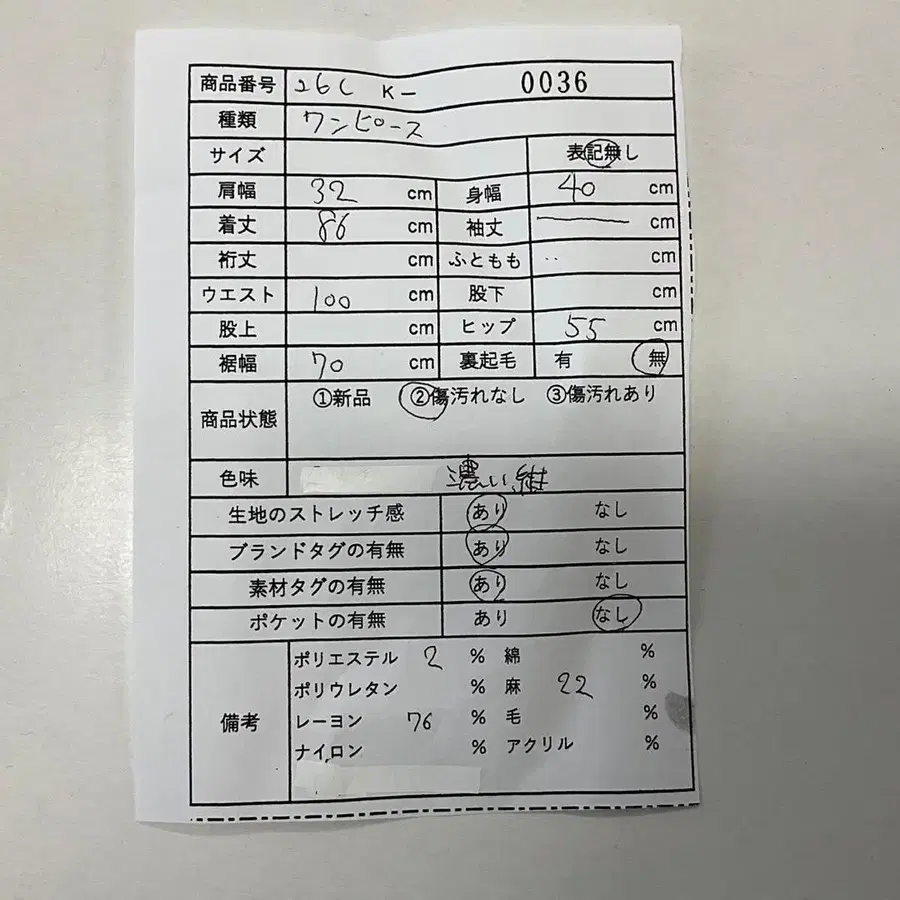 商品番号 26C K- 0036
種類 ワンピース
サイズ 表記無し
肩幅 32 cm 身幅 40 cm
着丈 86 cm 袖丈 — cm
裄丈 cm ふともも cm
ウエスト 100 cm 股下 cm
股上 cm ヒップ 55 cm
裾幅 70 cm 裏起毛 有 無
商品状態 ①新品 ②傷汚れなし ③傷汚れあり
色味 濃い
生地のストレッチ感 あり なし
ブランドタグの有無 あり なし
素材タグの有無 あり なし
ポケットの有無 あり なし
備考
ポリエステル 2 % 綿 %
ポリウレタン % 麻 22 %
レーヨン 76 % 毛 %
ナイロン % アクリル %